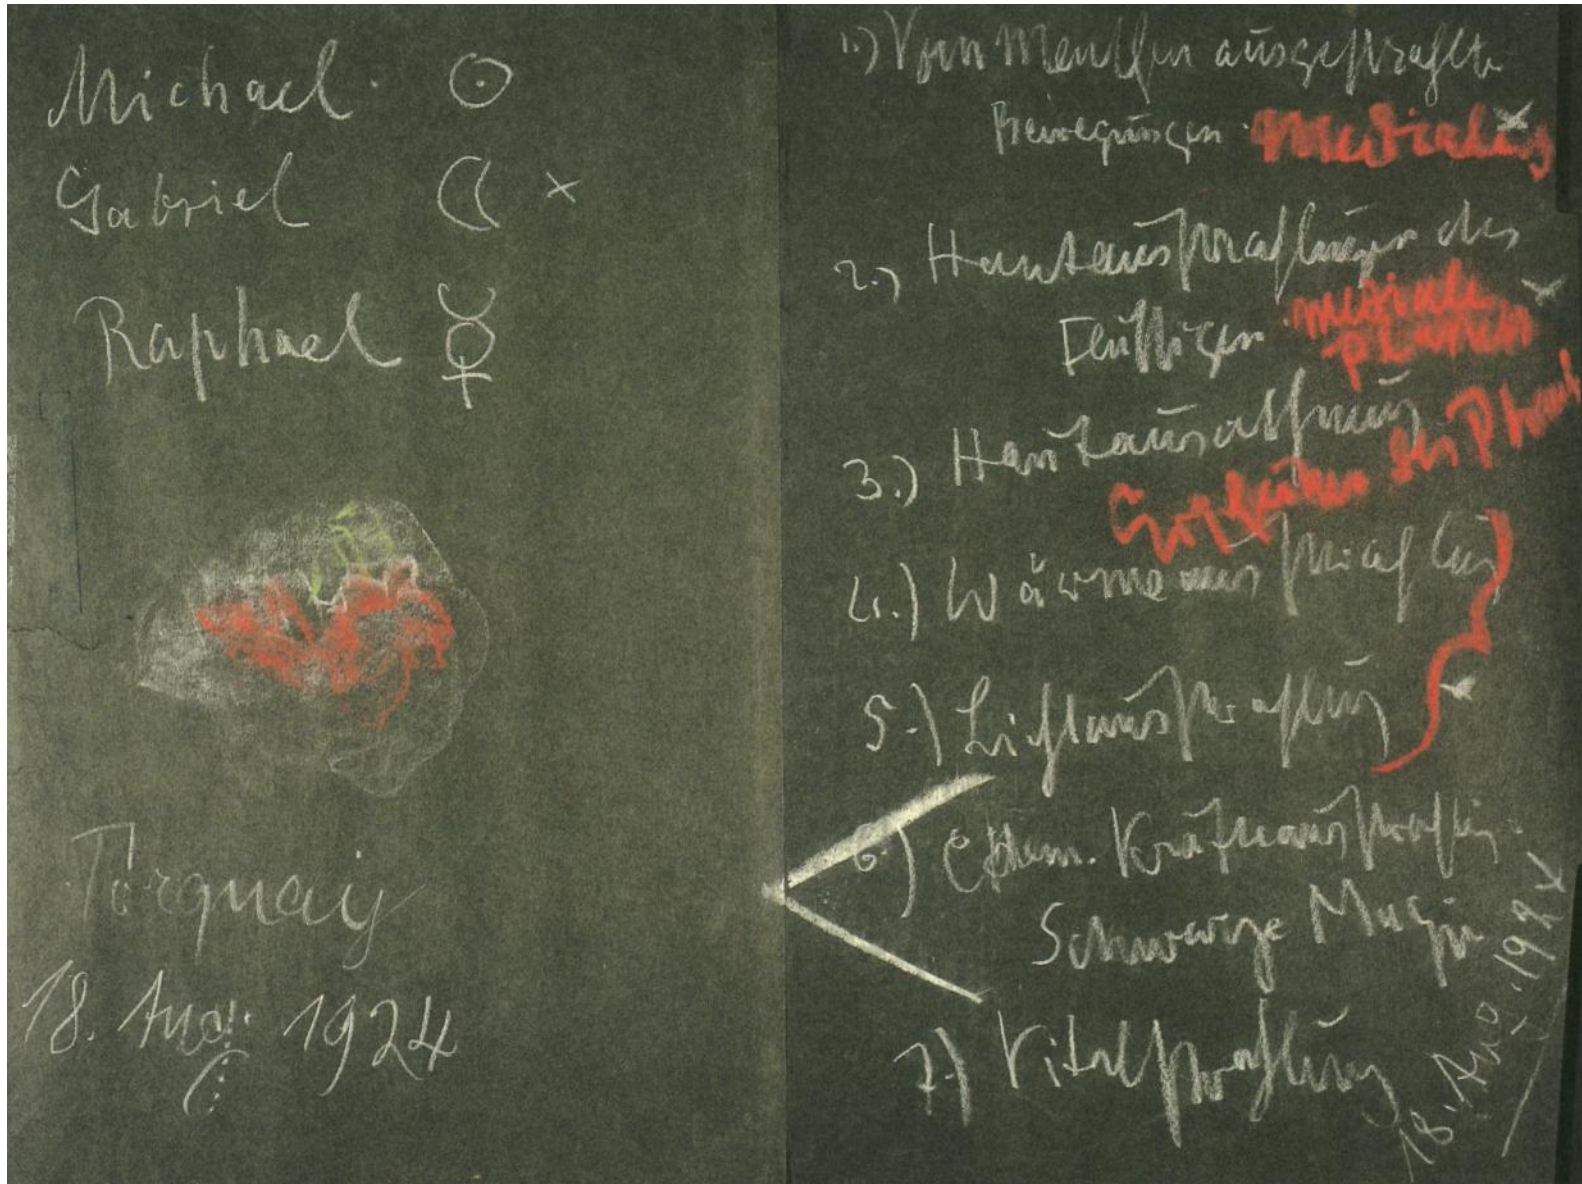 Michael. ☉
Gabriel ☾ ×
Raphael ☿
Torquay
18. Aug. 1924
1.) Vom Menschen ausgestrahlte
Bewegungen.
2.) Hautausstrahlungen des
Flüssigen. mediale
3.) Hautausathmung
des
4.) Wärmeausstrahlung
5.) Lichtausstrahlung
6.) Chem. Kräfteausstrahlung.
Schwarze Magie
7.) Vitalstrahlung
18. Aug. 192